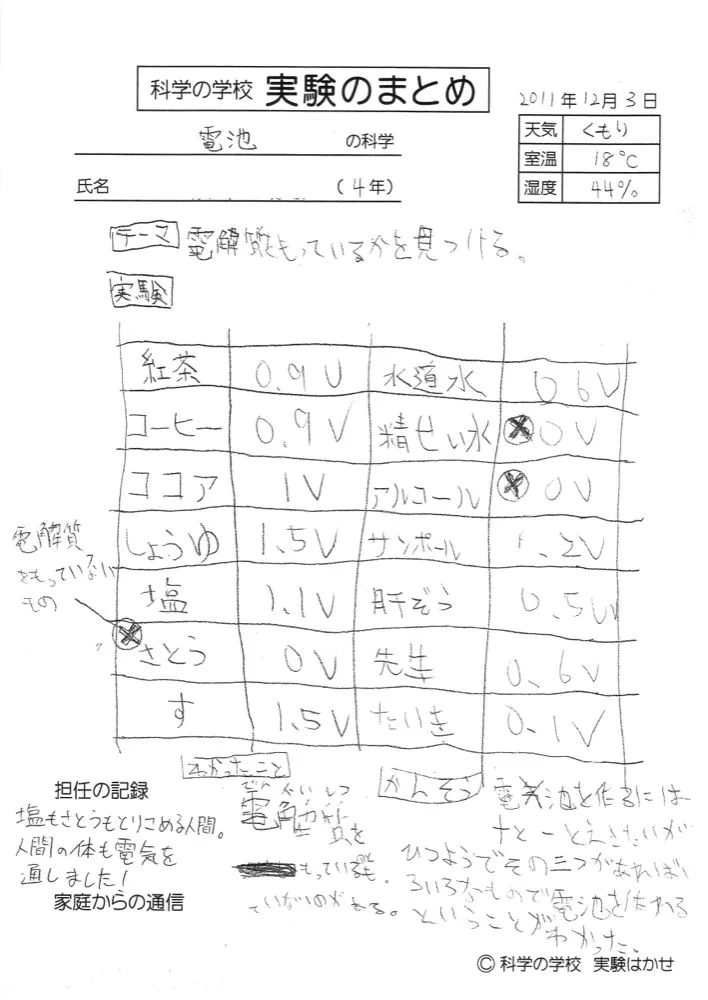 科学の学校 実験のまとめ
2011年12月3日
電池 の科学
天気 くもり
室温 18℃
湿度 44%
氏名 (4年)
テーマ 電解質をもっているかを見つける。
実験
紅茶 0.9V 水道水 0.6V
コーヒー 0.9V 精せい水 0V
ココア 1V アルコール 0V
しょうゆ 1.5V サンポール .2V
塩 1.1V 肝ぞう 0.5V
さとう 0V 先生 0.6V
す 1.5V たいき 0.1V
電解質
をもっていない
もの
わかったこと
でんかいしつ
電解質を
もっている
ていないのがある。
かんそう
電池を作るには
+と-とえきたいが
ひつようでその三つがあれば
ろいろなもので電池を作れる
ということが
わかった。
担任の記録
塩もさとうもとりこめる人間。
人間の体も電気を
通しました!
家庭からの通信
© 科学の学校 実験はかせ